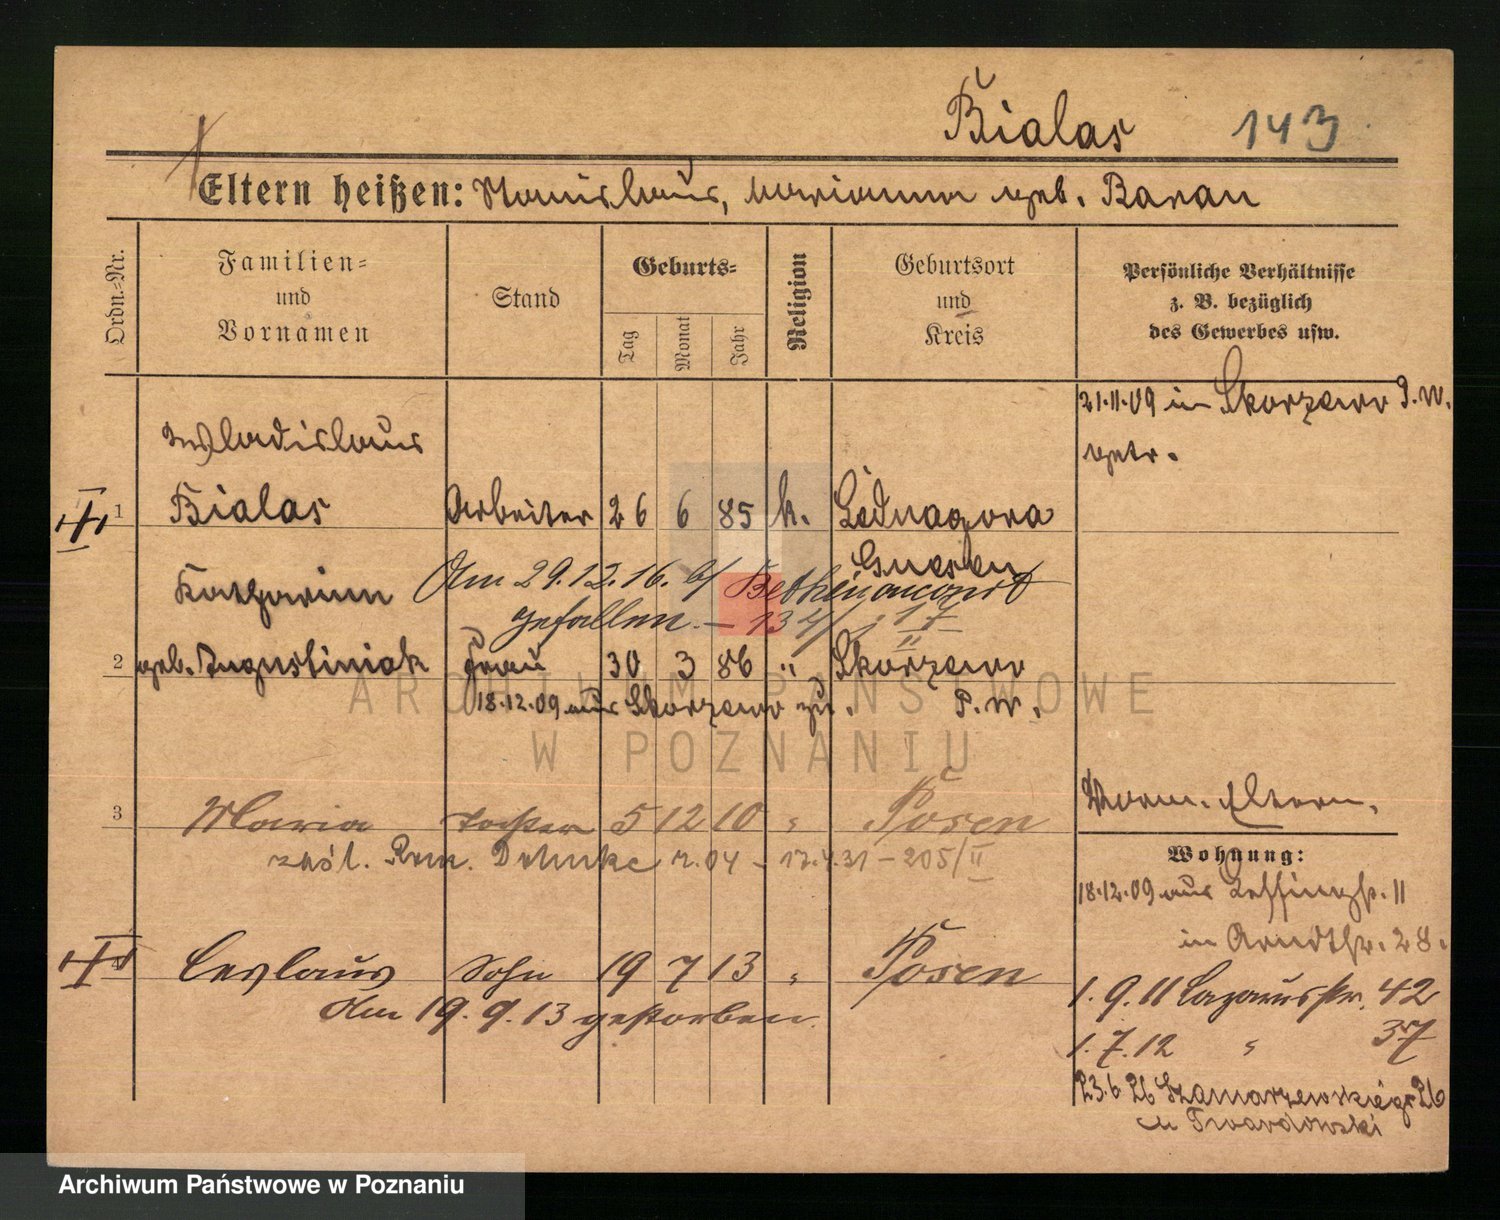 Bialas 143
Eltern heißen: Stanislaus, Marianna geb. Baran
Ordn.-Nr.
Familien-
und
Vornamen
Stand
Geburts-
Tag
Monat
Jahr
Religion
Geburtsort
und
Kreis
Persönliche Verhältnisse
z. B. bezüglich
des Gewerbes usw.
21.11.09 in Skorzewo P.W.
getr.
Wladislaus
1 Bialas Arbeiter 26 6 85 k. Lednagora
Gnesen
Katharina
Am 29.12.16. b/ Bethénancourt
gefallen. – 134/ 17
II
2 geb. Augustiniak Frau 30 3 86 " Skorzewo
18.12.09 aus Skorzewo zu. P.W.
3 Maria Tochter 5 12 10 " Posen
zaśl. Rom. 04 – 17.4.31 – 205/II
Ceslaus Sohn 19 7 13 " Posen
Am 19.9.13 gestorben.
Eltern.
Wohnung:
18.12.09 aus Lessingstr. 11
in Arndtstr. 28.
1.9.11 Lazarusstr. 42
1.7.12 " 37
23.6.26 Szamarzewskiego 26
u Twardowski
ARCHIWUM PAŃSTWOWE
W POZNANIU
Archiwum Państwowe w Poznaniu